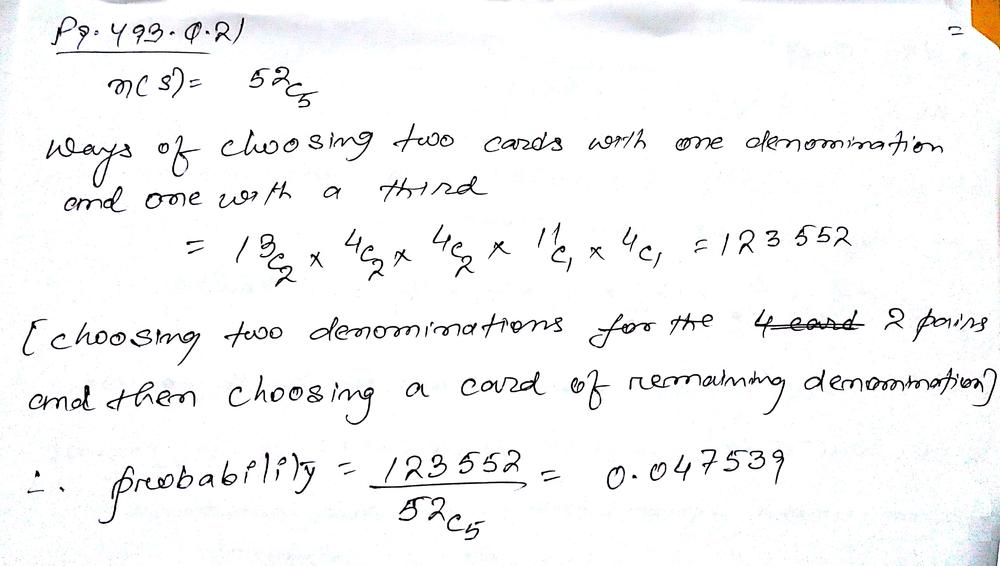 Pg. 493. Q. 2)
=
n(S) = 52C5
Ways of choosing two cards with one denomination
and one with a third
= 13C2 x 4C2 x 4C2 x 11C1 x 4C1 = 123552
[choosing two denominations for the 4 card 2 pairs
and then choosing a card of remaining denomination]
∴ probability = 123552 / 52C5 = 0.047539